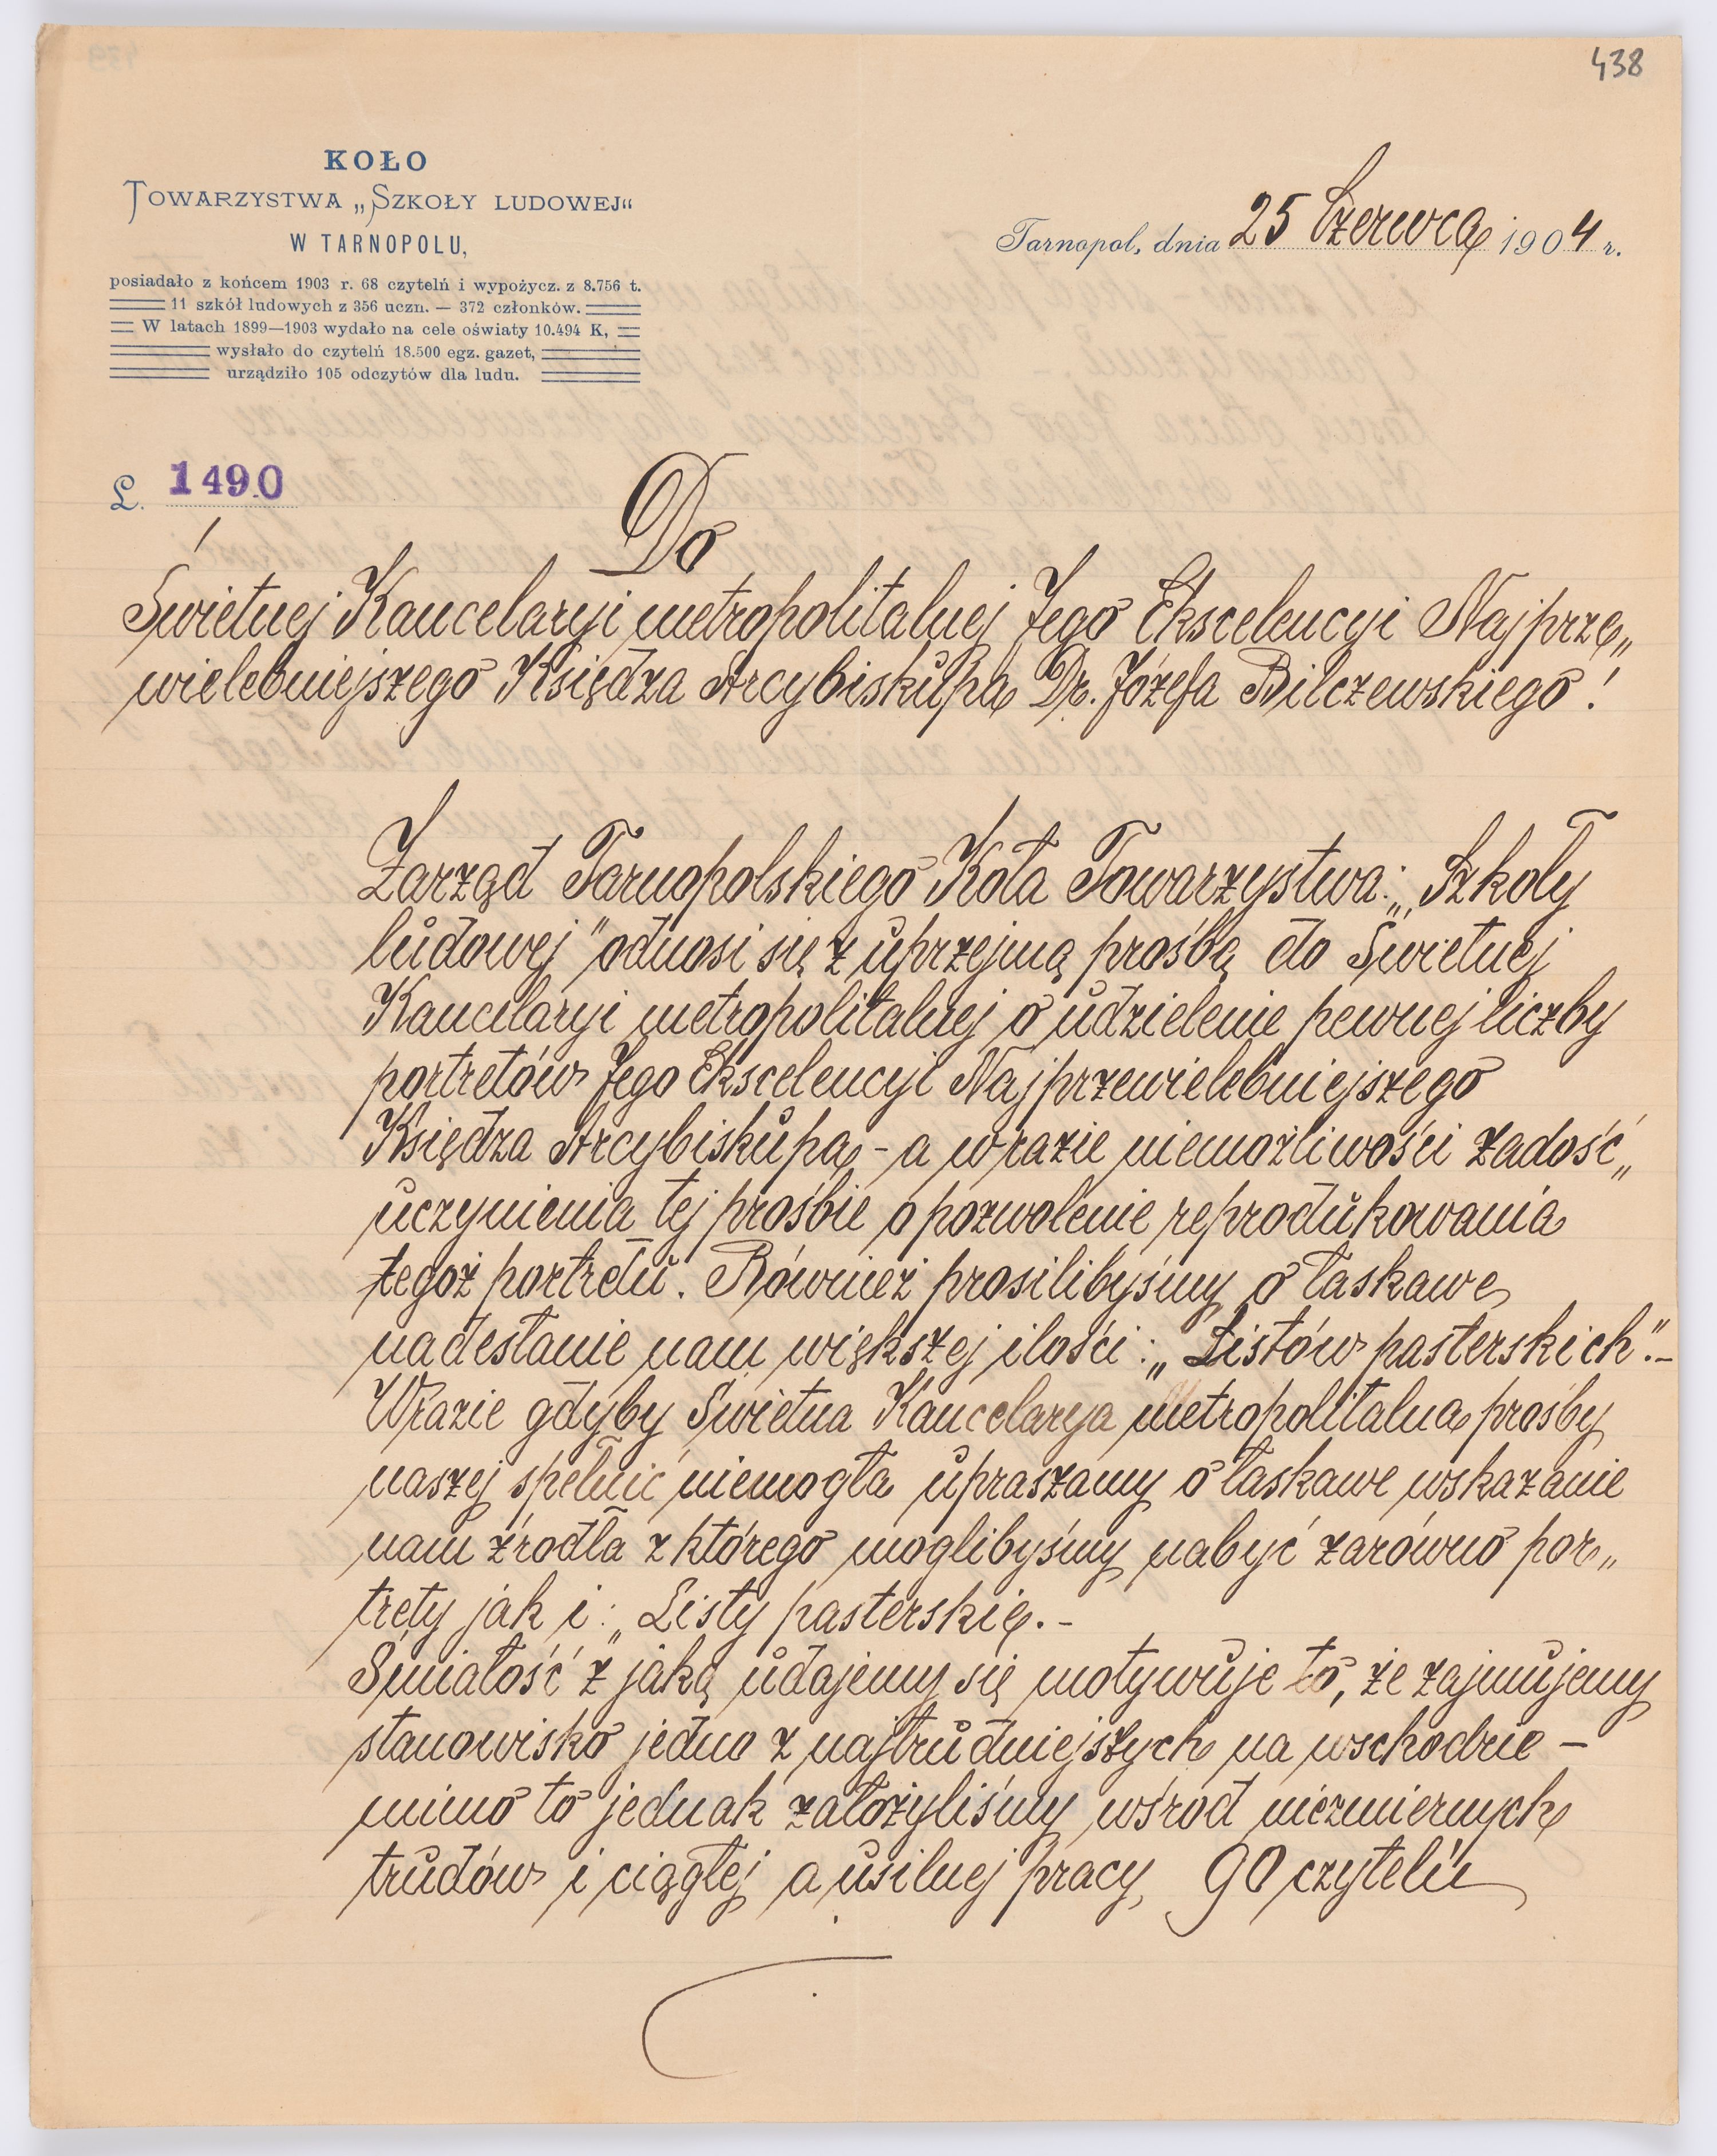 438
KOŁO
TOWARZYSTWA „SZKOŁY LUDOWEJ“
W TARNOPOLU,
posiadało z końcem 1903 r. 68 czyteln̄ i wypożycz. z 8.756 t.
11 szkół ludowych z 356 uczn. — 372 członków.
W latach 1899—1903 wydało na cele oświaty 10.494 K,
wysłało do czytelń 18.500 egz. gazet,
urządziło 105 odczytów dla ludu.
Tarnopol, dnia 25 Czerwca 1904 r.
L. 1490
Do
Świetnej Kancelaryi metropolitalnej Jego Ekscelencyi Najprze„
wielebniejszego Księdza Arcybiskupa Dr. Józefa Bilczewskiego!
Zarząd Tarnopolskiego Koła Towarzystwa: „Szkoły
ludowej" odnosi się z uprzejmą prośbą do Świetnej
Kancelaryi metropolitalnej o udzielenie pewnej liczby
portretów Jego Ekscelencyi Najprzewielebniejszego
Księdza Arcybiskupa - a w razie niemożliwości zadość„
uczynienia tej prośbie o pozwolenie reprodukowania
tegoż portretu. Również prosilibyśmy o łaskawe
nadesłanie nam większej ilości: „Listów pasterskich".-
W razie gdyby Świetna Kancelarya metropolitalna prośby
naszej spełnić niemogła upraszamy o łaskawe wskazanie
nam źrodła z którego moglibyśmy nabyć zarówno por„
trety jak i: „Listy pasterskie. -
Śmiałość z jaką udajemy się motywuje to, że zajmujemy
stanowisko jedno z najtrudniejszych na wschodzie -
mimo to jednak założyliśmy wśrod niezmiernych
trudów i ciągłej a usilnej pracy 90 czytelń